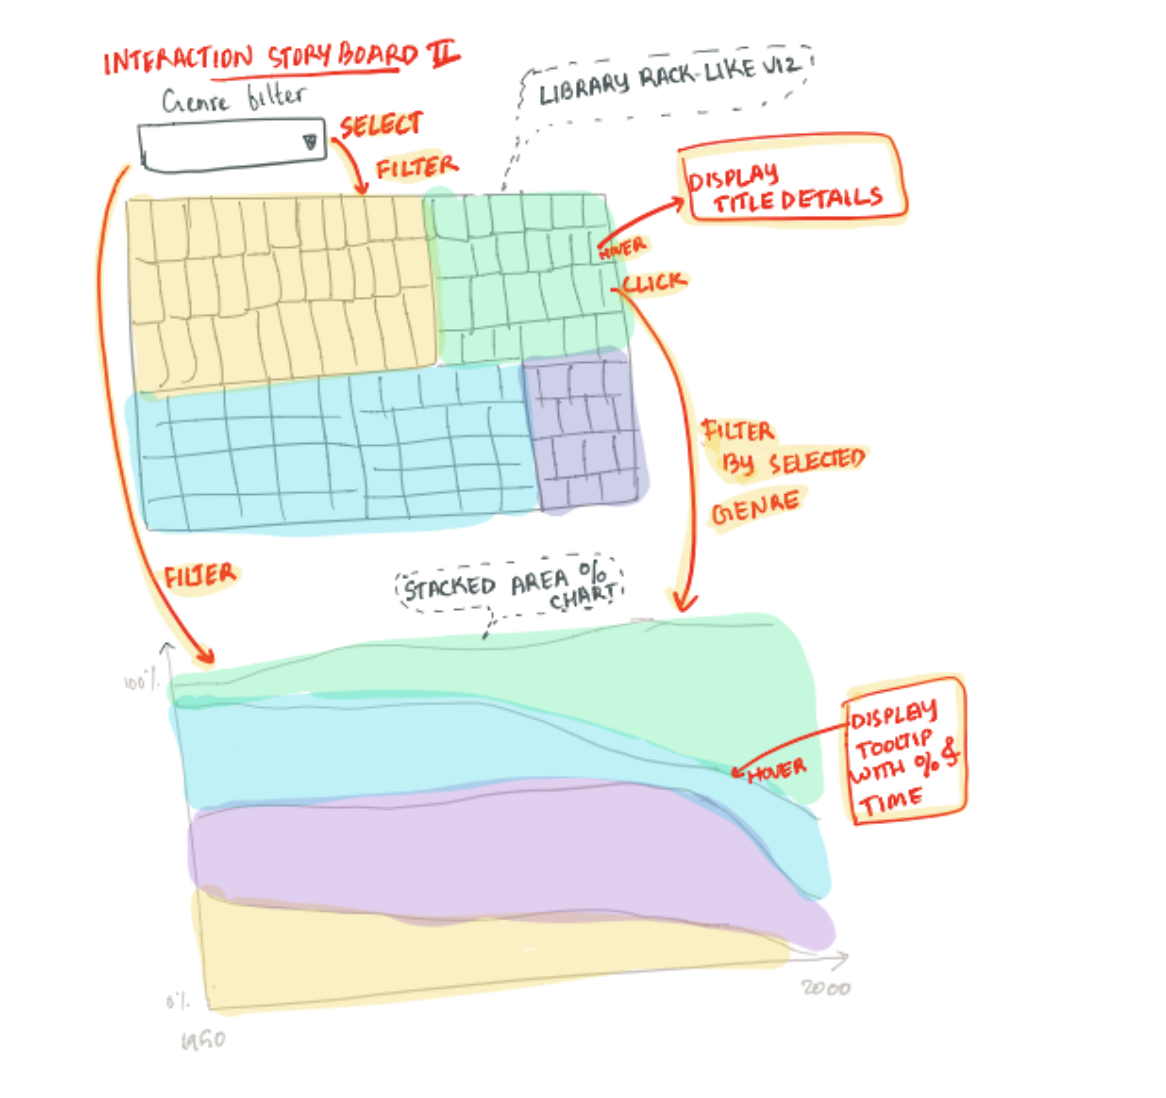 INTERACTION STORYBOARD II
Genre filter
SELECT
FILTER
LIBRARY RACK-LIKE VIZ
DISPLAY
TITLE DETAILS
HOVER
CLICK
FILTER
BY SELECTED
GENRE
FILTER
STACKED AREA %
CHART
100%
DISPLAY
TOOLTIP
WITH % &
TIME
HOVER
0%
2000
1950